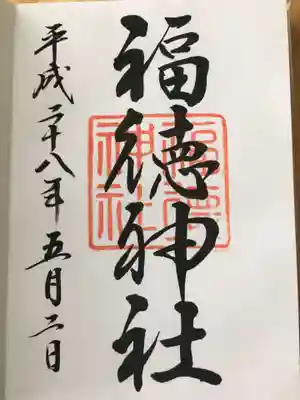 福徳神社
平成二十八年五月二日
福徳
神社